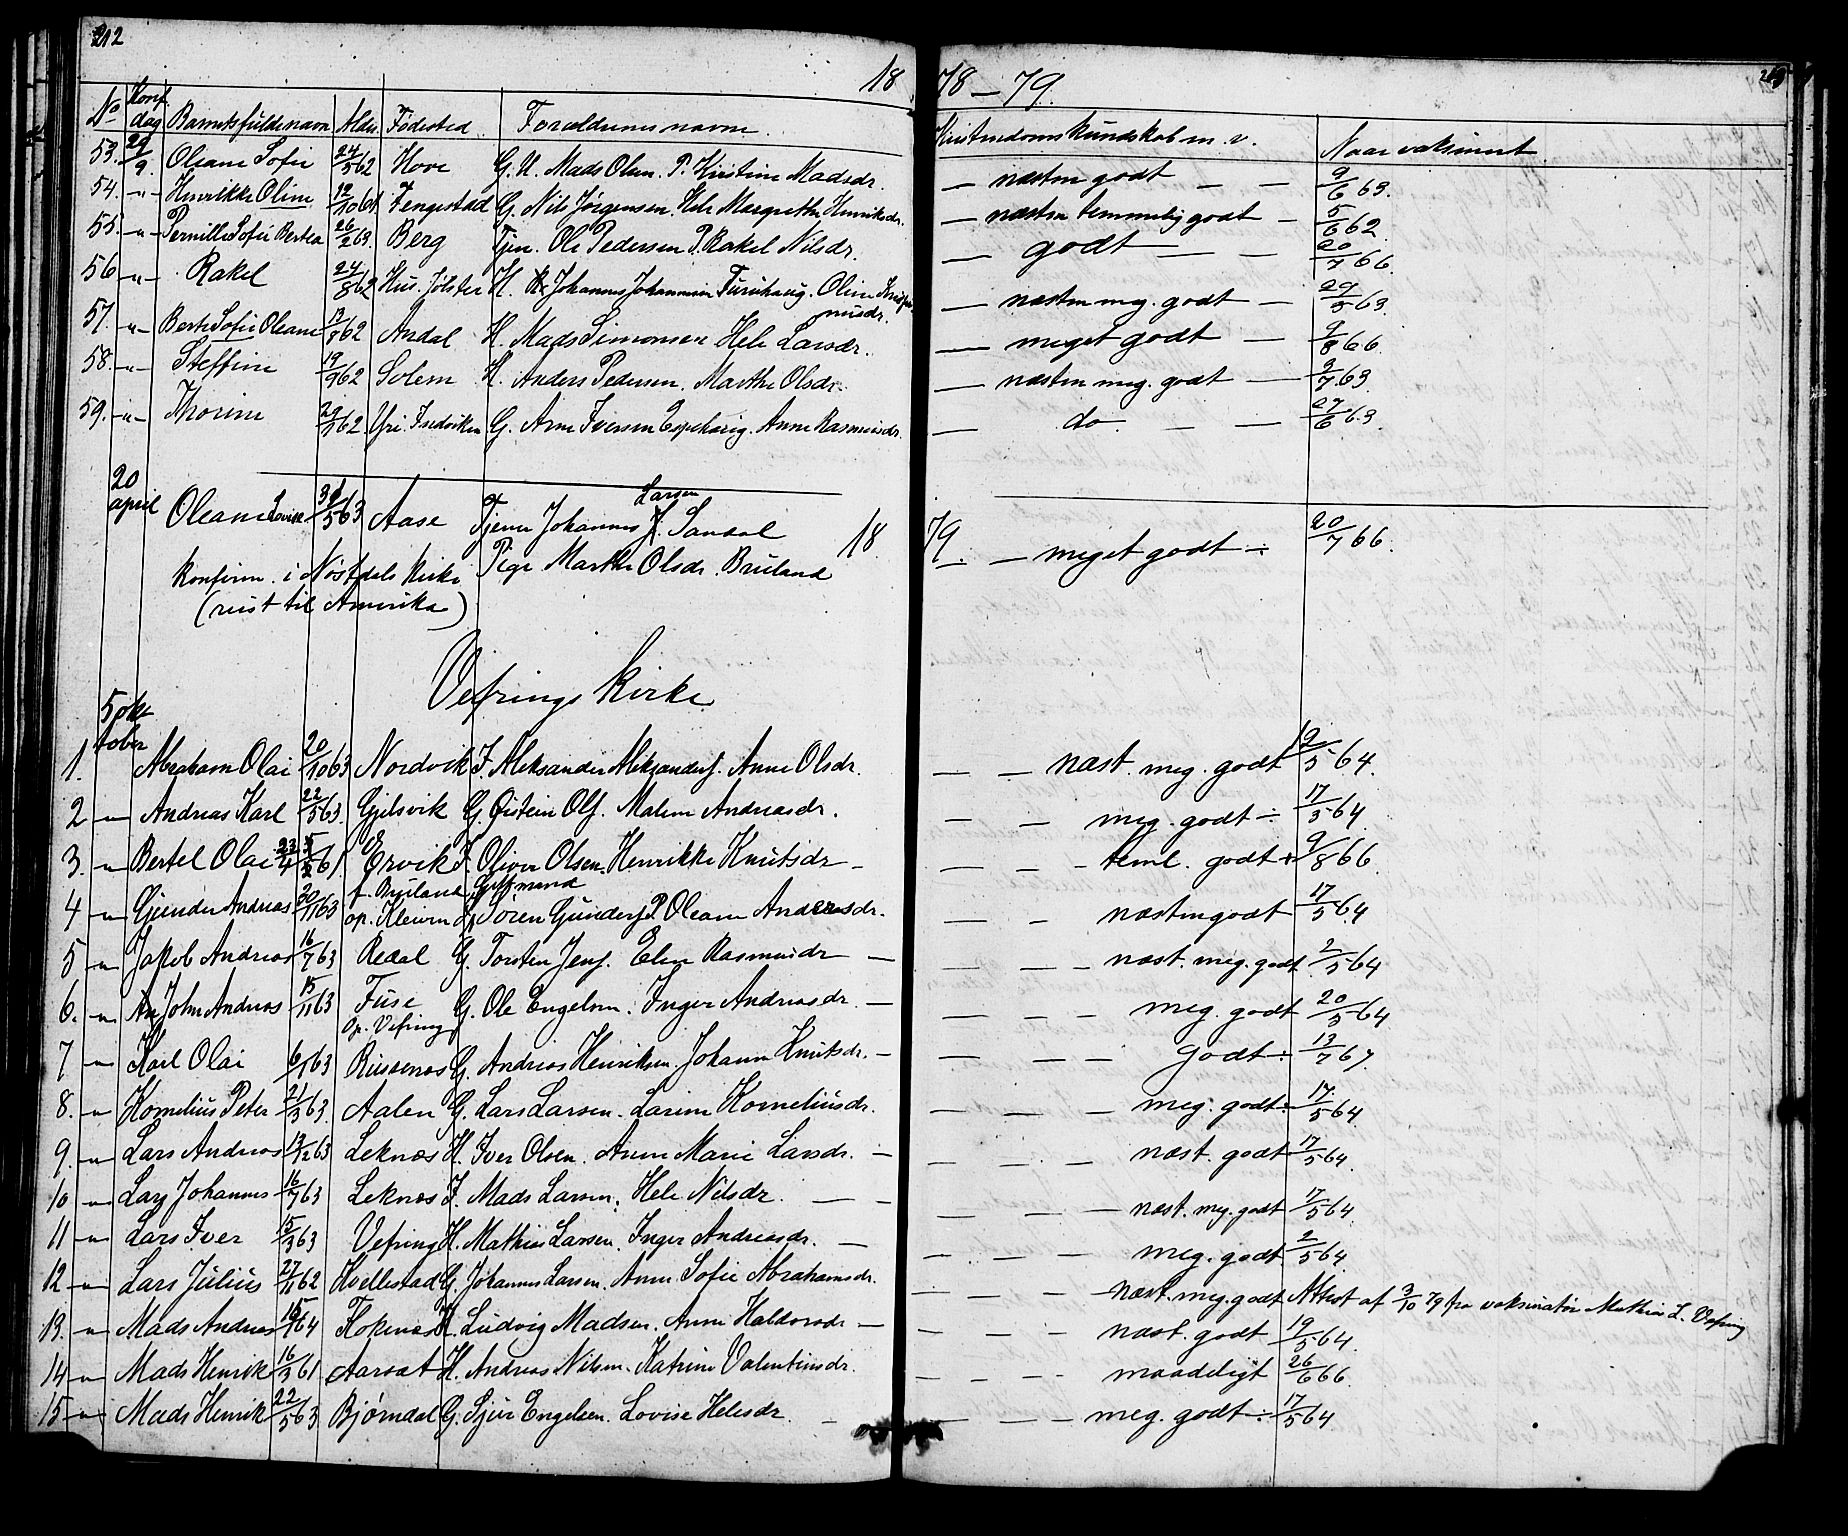 212
18 78 – 79.
213
No Konf. dag Barnets fulde navn Alder Fødested Forældrenes navne. Kristendomskundskab m. v. Naar vaksineret
53. 29/9. Oleane Sofie 24/5 62 Hove G. U. Mads Olsen. P. Kirstine Madsdr. — næsten godt — — 9/6 63.
54. -"- Henrikke Oline 12/10 61 Fengestad G. Nils Jørgensen. Hele Margrethe Henriksdr. — næsten temmelig godt — 5/6 62.
55. -"- Pernille Sofie Bertea 26/2 63. Berg Tjen. Ole Pedersen P. Rakel Nilsdr. — godt — — 20/7 66.
56 -"- Rakel 24/8 62 Hus. Jølster H. Johannes Johannesen Furuhaug. Oline Rasmusdr. — næsten meg. godt — 29/5 63.
57. -"- Berte Sofie Oleane 13/7 62 Andal H. Mads Simonsen Hele Larsdr. — meget godt — 9/8 66.
58. -"- Steffine 19/9 62 Solem H. Anders Pedersen. Marthe Olsdr. — næsten meg. godt — 9/7 63
59. -"- Thorine 29/1 62 Yri. Indviken G. Arne Iversen Espehaug. Anne Rasmusdr. — do. — — 27/6 63.
20 april Oleane Lovise 31/5 63 Aase Tjener Johannes Larsen Sandal
Pige Marthe Olsdr. Bruland 18 79. — meget godt ÷ 20/7 66.
konfirm. i Nøstdals kirke
(reist til Amerika)
Vefrings kirke
5 oktober
1. Abraham Olai 20/10 63 Nordvik F. Aleksander Aleksanders. Anne Olsdr. — — næst. meg. godt 12/5 64.
2 -"- Andreas Karl 22/5 63. Gjelsvik G. Øistein Ols. Malene Andreasdr. — — meg. godt ÷ 17/5 64.
3. -"- Bertel Olai 23/4 61. Ervik F. Oliver Olsen. Henrikke Knutsdr — — — - teml. godt ÷ 9/8 66.
4 -"- Gjunder Andreas 20/11 63 f. Bruland op. Kleiven Giftmand Søren Gunders. P. Oleane Andreasdr. — - næsten godt 17/5 64.
5 -"- Jakob Andreas 16/7 63 Redal G. Torsten Jens. Elen Rasmusdr — — — — næst. meg. godt 2/5 64
6. -"- John Andreas 15/11 63 Fuse op. Vefring G. Ole Engelsen. Inger Andreasdr. — — — — meg. godt 20/5 64
7 -"- Karl Olai 6/1 63 Russenes G. Andreas Henriksen. Johanne Knutsdr. — — — — godt ÷ 13/7 67.
8. -"- Kornelius Peter 21/3 63. Aalen G. Lars Larsen. Larine Korneliusdr. — — — meg. godt ÷ 17/5 64
9. -"- Lars Andreas 13/12 63 Leknes H. Iver Olsen. Anne Marie Larsdr. — — — — næst. godt 17/5 64.
10 -"- Lars Johannes 16/7 63 Leknes F. Mads Larsen. Hele Nilsdr. — — — — — næst. meg. godt 17/5 64.
11 -"- Lars Iver 15/3 63 Vefring H. Mathias Larsen. Inger Andreasdr. — — — — meg. godt 2/5 64
12 -"- Lars Julius 27/11 62 Hvellestad G. Johannes Larsen. Anne Sofie Abrahamsdr. — — — næst. meg. godt Attest af 3/10 79 fra vaksinatør Mathias L. Vefring
13. -"- Mads Andreas 15/1 64 Flokenes H. Ludvig Madsen. Anne Haldorsdr — — — — næst. godt 19/5 64.
14 -"- Mads Henrik 16/3 61 Aarset H. Andreas Nilsen. Katrine Valentinsdr. — — — maadeligt 26/6 66
15 -"- Mads Henrik 22/5 63 Bjørndal G. Sjur Engelsen. Lovise Helesdr. — — — — meg. godt ÷ 17/5 64